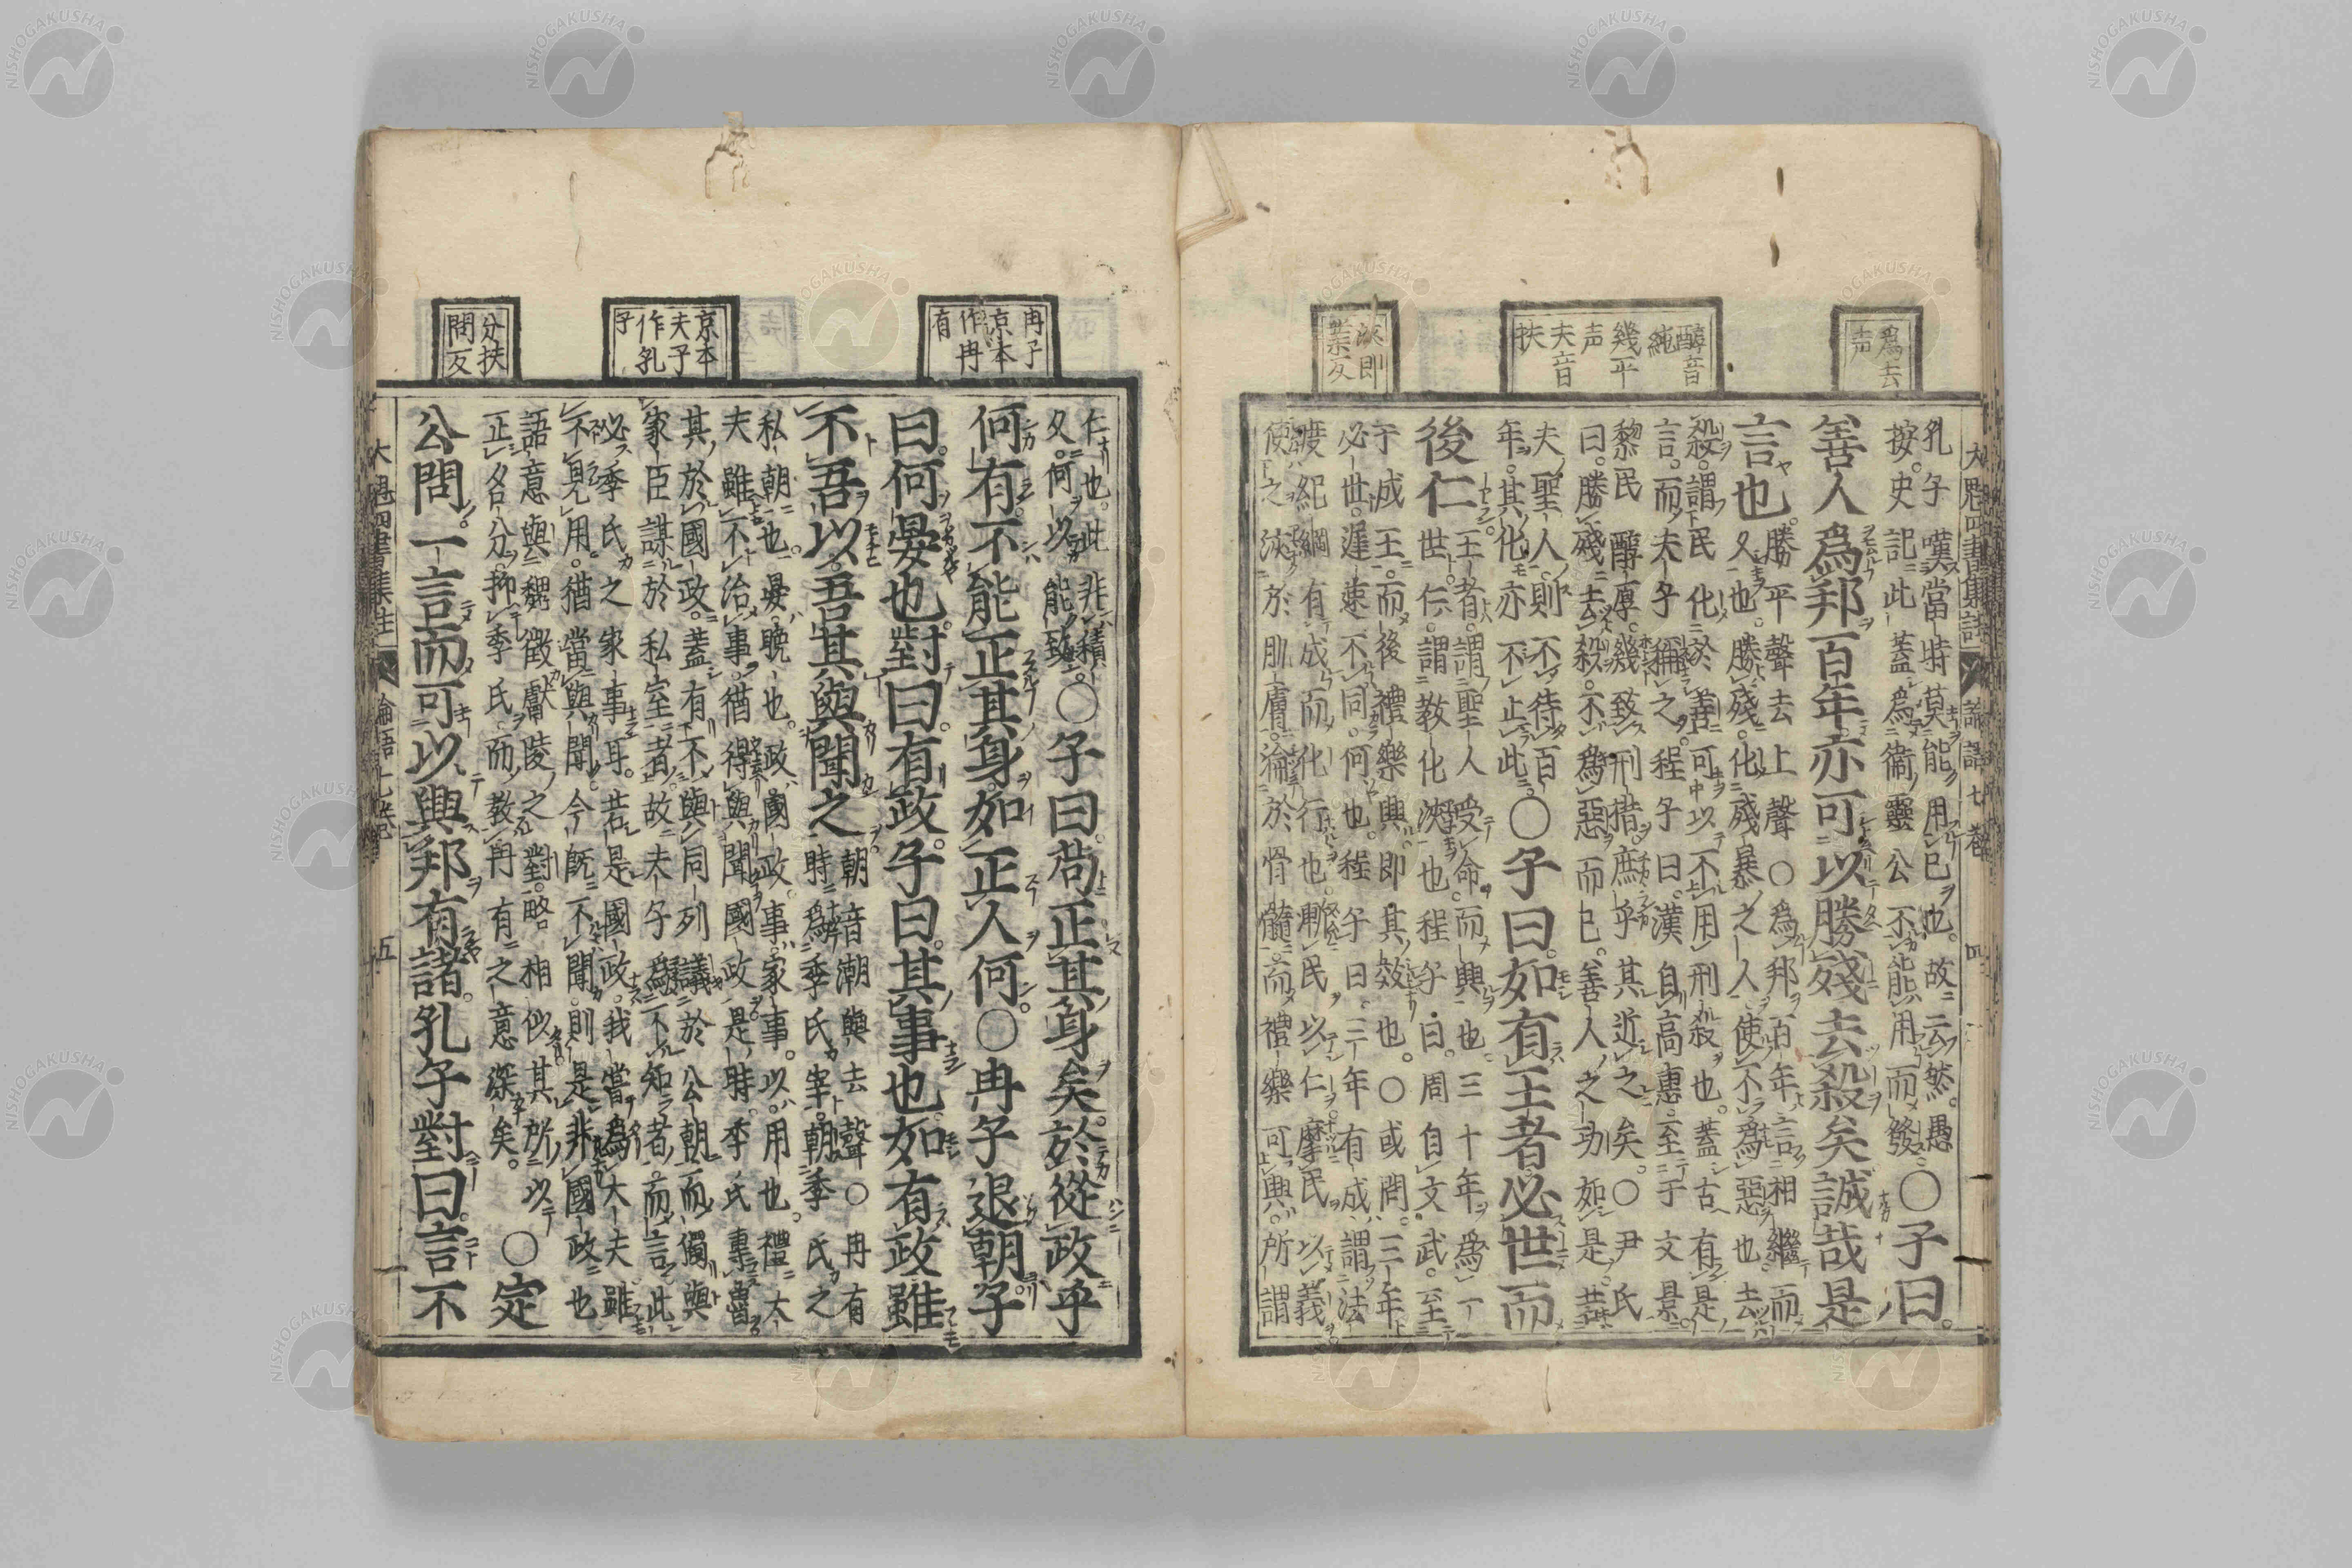 爲去
声
醇音
純
幾平
声
夫音
扶
浹即
業反
大魁四書集註 論語七巻 四
孔子嘆當時莫能用已也。故云然。愚
按。史記此蓋爲衞靈公不能用而發
○子曰。
善人爲邦百年亦可以勝殘去殺矣誠哉是
言也。
勝平聲去上聲○爲邦百年言相繼而
久也。勝殘化殘暴之人使不爲惡也去
殺。謂民化於善可以不用刑殺也。蓋古有是
言。而夫子稱之。程子曰。漢自高惠至于文景。
黎民醇厚。幾致刑措。庶乎其近之矣。○尹氏
曰。勝殘去殺。不爲惡而已。善人之功如是。若
夫聖人。則不待百
年。其化亦不止此
○子曰。如有王者必世而
後仁
王者。謂聖人受命。而興也三十年爲一
世仁。謂教化浹也程子曰。周自文武。至
于成王。而後禮樂興。即其效也。○或問。三年
必世。遲速不同。何也。程子曰。三年有成。謂法
度紀綱有成而化行也。漸民以仁摩民以義
使之浹於肌膚。淪於骨髓。而禮樂可興。所謂
冉子
京本
作冉
有
京本
夫子
作孔
子
分扶
問反
仁也。此非積
久。何以能致。
○子曰。苟正其身矣。於從政乎
何有。不能正其身。如正人何。○冉子退朝子
曰。何晏也。對曰。有政。子曰。其事也。如有政雖
不吾以。吾其與聞之
朝音潮與去聲○冉有
時爲季氏宰。朝季氏之
私朝也。晏。晩也。政。國政。事。家事。以。用也。禮大
夫雖不治事。猶得與聞國政是時季氏專魯
其於國政。蓋有不與同列議於公朝而獨與
家臣謀於私室者。故夫子爲不知者。而言。此
必季氏之家事耳。若是國政。我嘗爲大夫雖
不見用。猶當與聞今既不聞。則是非國政也
語意與魏徵獻陵之對。略相似其所以
正名分。抑季氏。而教冉有之意深矣。
○定
公問。一言而可以興邦有諸。孔子對曰。言不
大魁四書集註 論語七巻 五